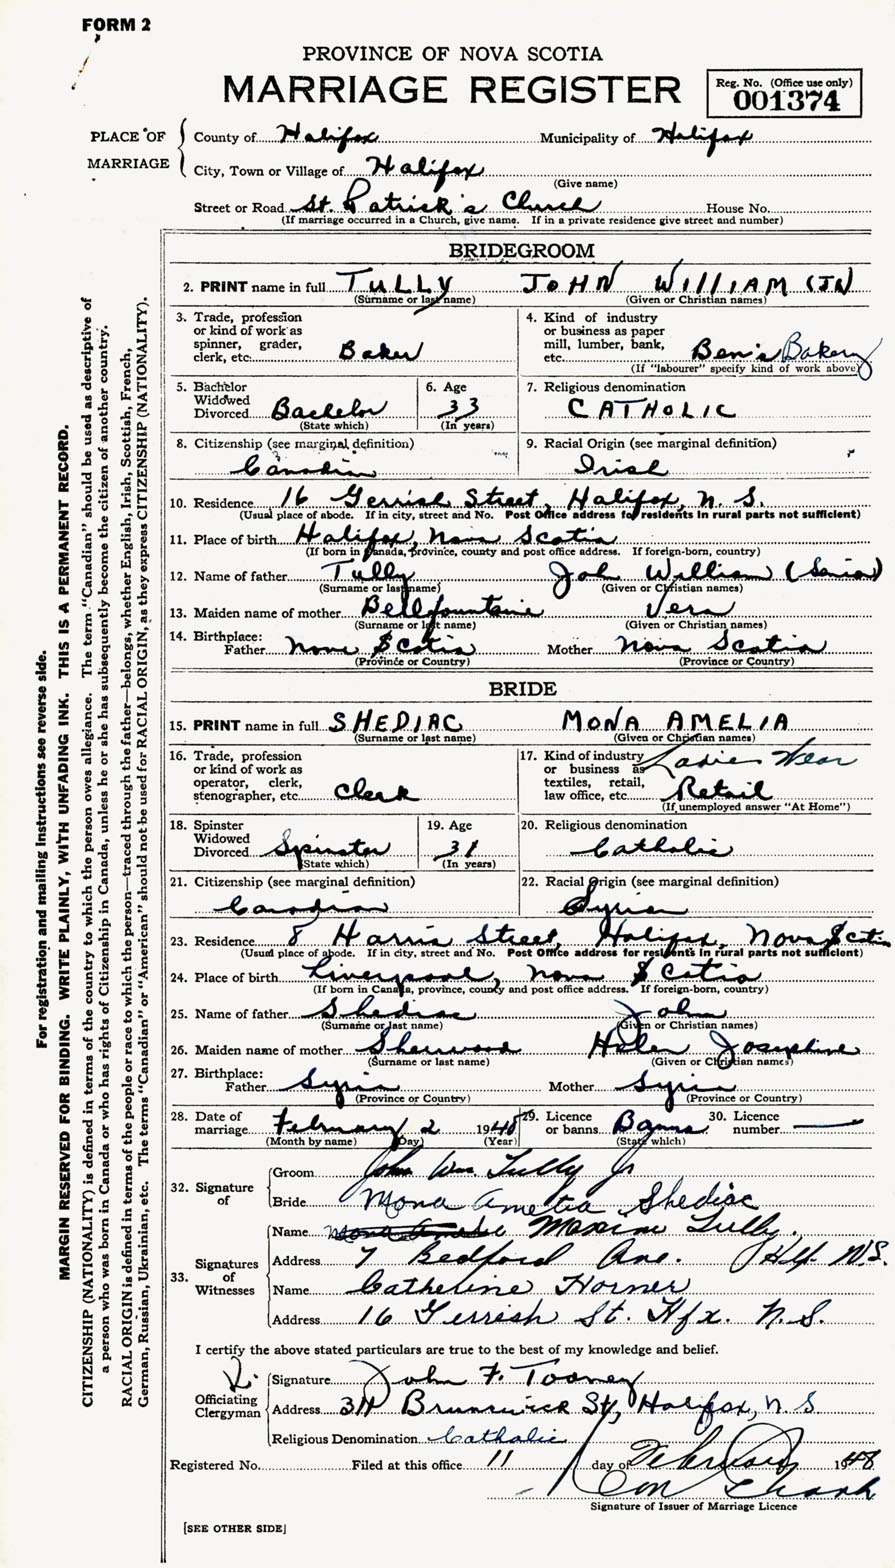 FORM 2
PROVINCE OF NOVA SCOTIA
MARRIAGE REGISTER
Reg. No. (Office use only)
001374
PLACE OF MARRIAGE
County of Halifax Municipality of Halifax
City, Town or Village of Halifax
(Give name)
Street or Road St. Patrick's Church House No.
(If marriage occurred in a Church, give name. If in a private residence give street and number)
BRIDEGROOM
2. PRINT name in full TULLY JOHN WILLIAM (JR)
(Surname or last name) (Given or Christian names)
3. Trade, profession
or kind of work as
spinner, grader,
clerk, etc. Baker
4. Kind of industry
or business as paper
mill, lumber, bank,
etc. Ben's Bakery
(If "labourer" specify kind of work above)
5. Bachelor
Widowed
Divorced Bachelor
(State which)
6. Age
33
(In years)
7. Religious denomination
CATHOLIC
8. Citizenship (see marginal definition)
Canadian
9. Racial Origin (see marginal definition)
Irish
10. Residence 16 Gerrish Street, Halifax, N. S.
(Usual place of abode. If in city, street and No. Post Office address for residents in rural parts not sufficient)
11. Place of birth Halifax, Nova Scotia
(If born in Canada, province, county and post office address. If foreign-born, country)
12. Name of father Tully John William (Senior)
(Surname or last name) (Given or Christian names)
13. Maiden name of mother Bellfountaine Vera
(Surname or last name) (Given or Christian names)
14. Birthplace:
Father Nova Scotia Mother Nova Scotia
(Province or Country) (Province or Country)
BRIDE
15. PRINT name in full SHEDIAC MONA AMELIA
(Surname or last name) (Given or Christian names)
16. Trade, profession
or kind of work as
operator, clerk,
stenographer, etc. Clerk
17. Kind of industry
or business as
textiles, retail,
law office, etc. Ladies Wear
Retail
(If unemployed answer "At Home")
18. Spinster
Widowed
Divorced Spinster
(State which)
19. Age
31
(In years)
20. Religious denomination
Catholic
21. Citizenship (see marginal definition)
Canadian
22. Racial Origin (see marginal definition)
Syrian
23. Residence 8 Harris Street, Halifax, Nova Scotia
(Usual place of abode. If in city, street and No. Post Office address for residents in rural parts not sufficient)
24. Place of birth Liverpool, Nova Scotia
(If born in Canada, province, county and post office address. If foreign-born, country)
25. Name of father Shediac John
(Surname or last name) (Given or Christian names)
26. Maiden name of mother Sherwood Helen Josephine
(Surname or last name) (Given or Christian names)
27. Birthplace:
Father Syria Mother Syria
(Province or Country) (Province or Country)
28. Date of
marriage February 2 1948
(Month by name) (Day) (Year)
29. Licence
or banns Banns
(State which)
30. Licence
number
32. Signature of
Groom John Wm. Tully Jr
Bride Mona Amelia Shediac
33. Signatures of Witnesses
Name Maxine Tully.
Address 7 Bedford Ave. Hfx N.S.
Name Catherine Horner
Address 16 Gerrish St. Hfx. N. S.
I certify the above stated particulars are true to the best of my knowledge and belief.
Officiating Clergyman
Signature John F. Toomey
Address Brunswick St, Halifax, N. S
Religious Denomination Catholic
Registered No. Filed at this office 11 day of February 1948
Signature of Issuer of Marriage Licence
[SEE OTHER SIDE]
For registration and mailing instructions see reverse side.
MARGIN RESERVED FOR BINDING. WRITE PLAINLY, WITH UNFADING INK. THIS IS A PERMANENT RECORD.
CITIZENSHIP (NATIONALITY) is defined in terms of the country to which the person owes allegiance. The term "Canadian" should be used as descriptive of
a person who was born in Canada or who has rights of Citizenship in Canada, unless he or she has subsequently become the citizen of another country.
RACIAL ORIGIN is defined in terms of the people or race to which the person—traced through the father—belongs, whether English, Irish, Scottish, French,
German, Russian, Ukrainian, etc. The terms "Canadian" or "American" should not be used for RACIAL ORIGIN, as they express CITIZENSHIP (NATIONALITY).